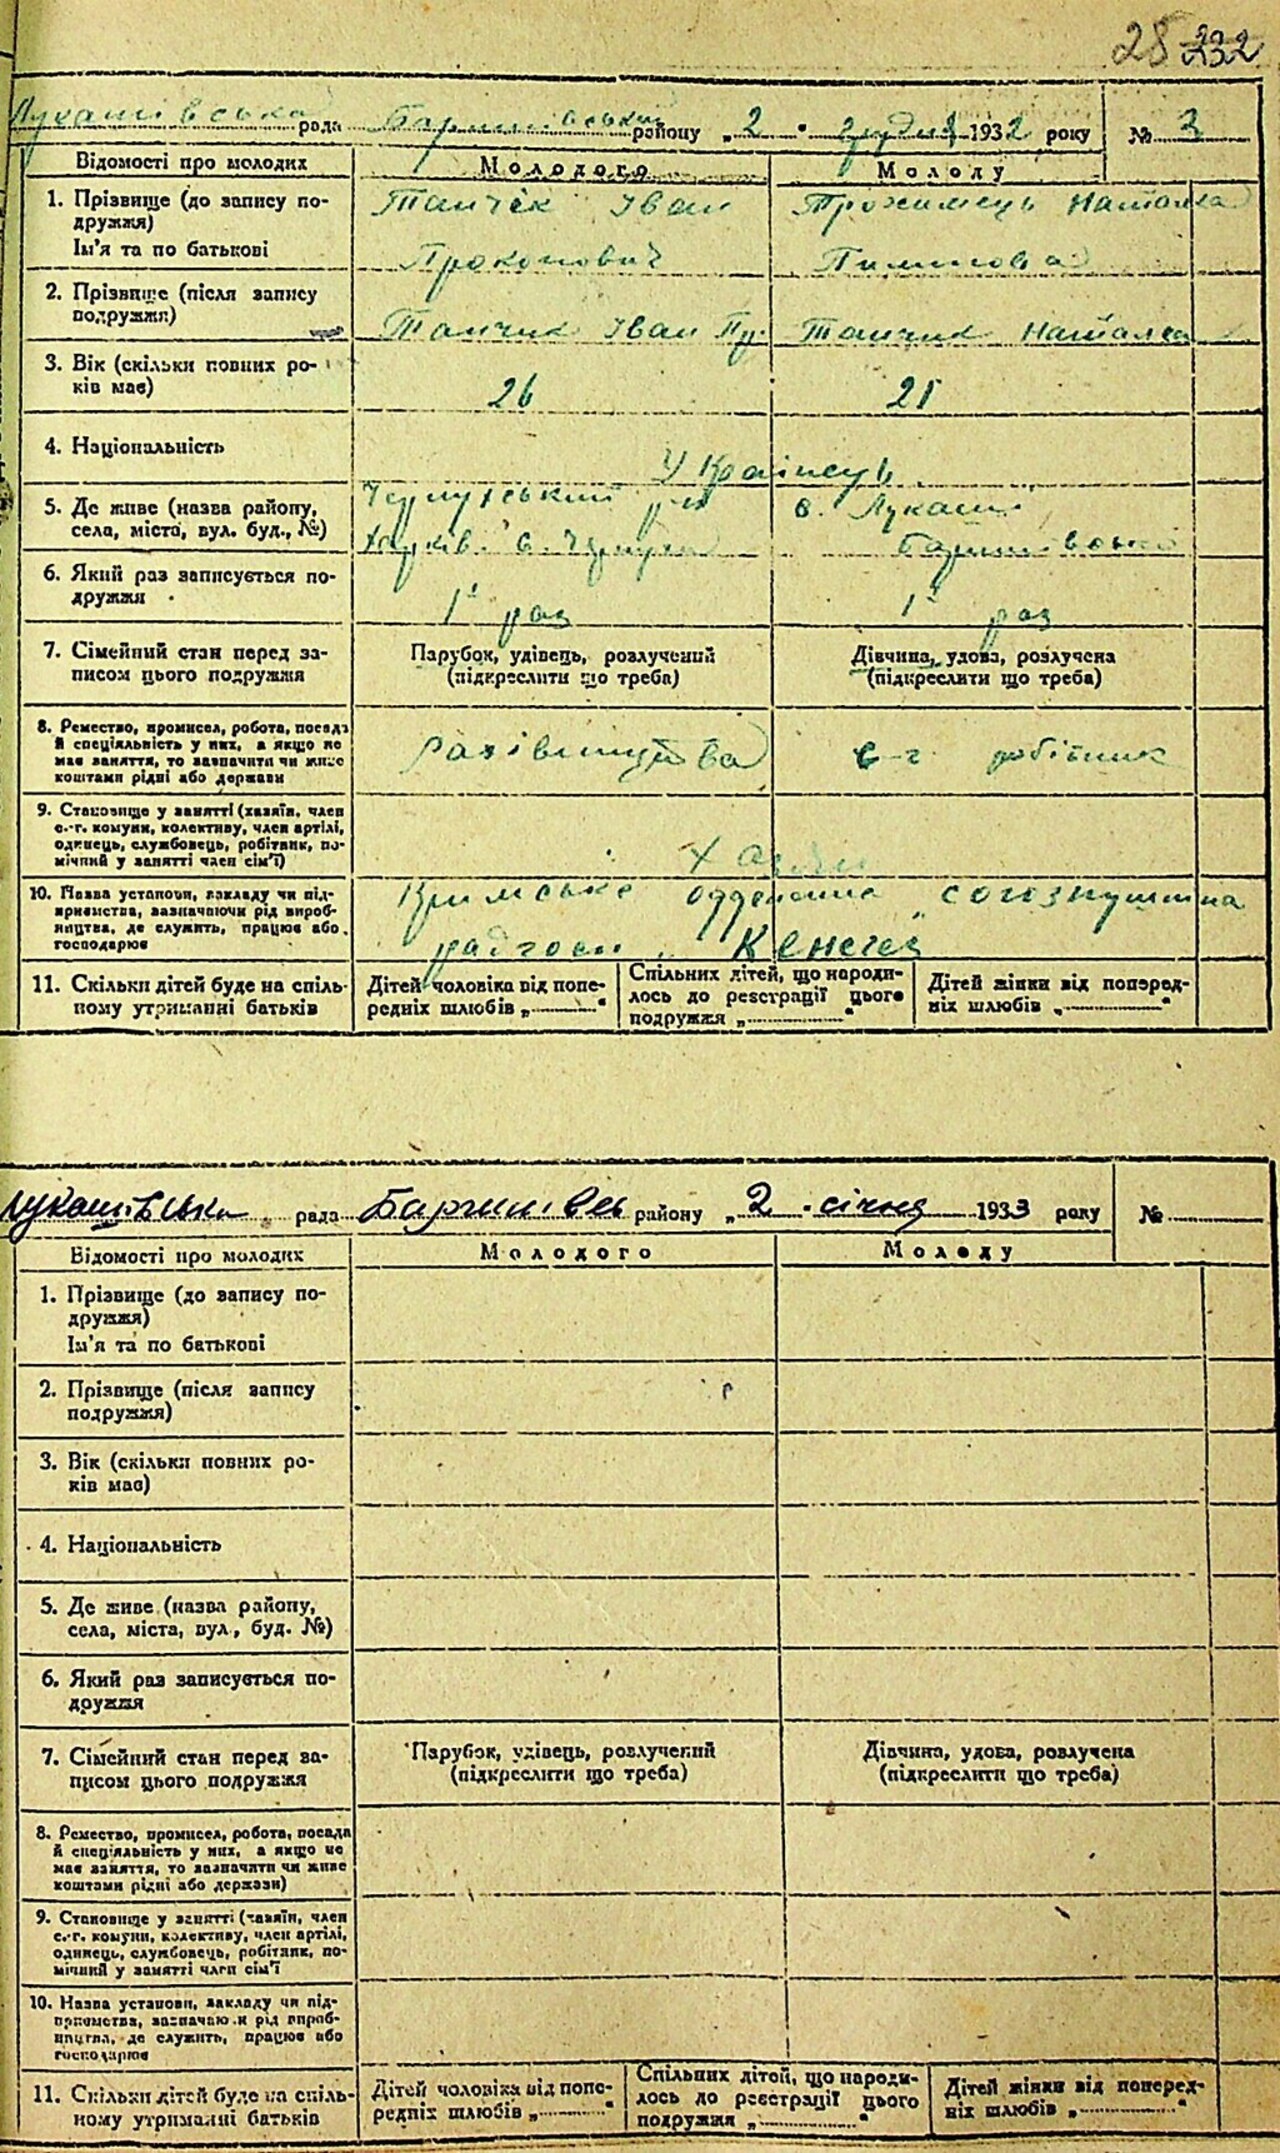 28 232
Лукашівська рада Баришівський району „2" грудня 1932 року № 3
Відомості про молодих Молодого Молоду
1. Прізвище (до запису по-
дружжя)
Ім'я та по батькові
Танчек Іван
Прокопович
Трохимець Наталка
Пименова
2. Прізвище (після запису
подружжя)
Танчик Іван Пр. Танчик Наталка
3. Вік (скільки повних ро-
ків має)
26
4. Національність
Українець
5. Де живе (назва району,
села, міста, вул. буд., №)
Чорнухський р-н
Харків. с. Чорнухи
с. Лукаші
Баришівсько
6. Який раз записується по-
дружжя
1й раз 1й раз
7. Сімейний стан перед за-
писом цього подружжя
Парубок, удівець, розлучений
(підкреслити що треба)
Дівчина, удова, розлучена
(підкреслити що треба)
8. Ремество, промисел, робота, посада
й спеціяльність у них, а якщо не
має заняття, то зазначити чи живе
коштами рідні або держави
с-г. робітник
9. Становище у занятті (хазяїн, член
с.-г. комуни, колективу, член артілі,
одинець, службовець, робітник, по-
мічний у занятті член сім'ї)
10. Назва установи, закладу чи під-
приємства, зазначаючи рід вироб-
ництва, де служить, працює або
господарює
Кримське
радгосп „Кенегез
11. Скільки дітей буде на спіль-
ному утриманні батьків
Дітей чоловіка від попе-
редніх шлюбів „ "
Спільних дітей, що народи-
лось до реєстрації цього
подружжя „ "
Дітей жінки від поперед-
ніх шлюбів „ "
Лукашівська рада Баришівсь району „2" січня 1933 року №
Відомості про молодих Молодого Молоду
1. Прізвище (до запису по-
дружжя)
Ім'я та по батькові
2. Прізвище (після запису
подружжя)
3. Вік (скільки повних ро-
ків має)
4. Національність
5. Де живе (назва району,
села, міста, вул., буд. №)
6. Який раз записується по-
дружжя
7. Сімейний стан перед за-
писом цього подружжя
Парубок, удівець, розлучений
(підкреслити що треба)
Дівчина, удова, розлучена
(підкреслити що треба)
8. Ремество, промисел, робота, посада
й спеціяльність у них, а якщо не
має заняття, то зазначити чи живе
коштами рідні або держави)
9. Становище у занятті (хазяїн, член
с.-г. комуни, колективу, член артілі,
одинець, службовець, робітник, по-
мічний у занятті член сім'ї
10. Назва установи, закладу чи під-
приємства, зазначаючи рід вироб-
ництва, де служить, працює або
господарює
11. Скільки дітей буде на спіль-
ному утриманні батьків
Дітей чоловіка від попе-
редніх шлюбів „ "
Спільних дітей, що народи-
лось до реєстрації цього
подружжя „ "
Дітей жінки від поперед-
ніх шлюбів „ "